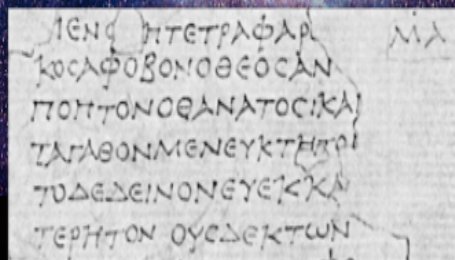 ΜΕΝΟ ΗΤΕΤΡΑΦΑΡ ΜΑ
ΚΟϹΑΦΟΒΟΝΟΘΕΟϹΑΝ
ΠΟΠΤΟΝΟΘΑΝΑΤΟϹΙΚΑΙ
ΤΑΓΑΘΟΝΜΕΝΕΥΚΤΗΤΟ
ΤΟΔΕΔΕΙΝΟΝΕΥΕΚΚΑ
ΤΕΡΗΤΟΝ ΟΥϹΔΕΚΤΩΝ